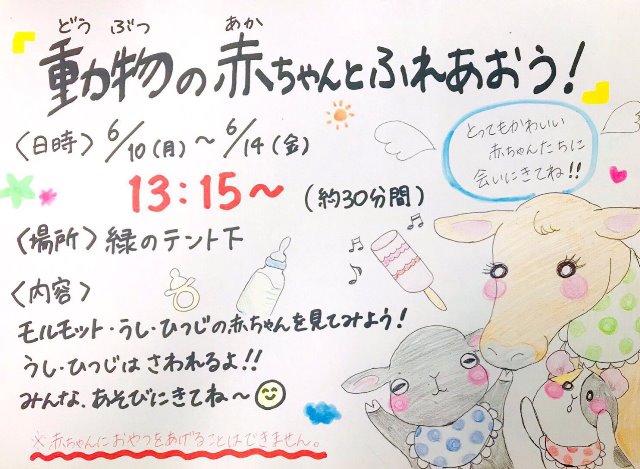 どう ぶつ あか
動物の赤ちゃんとふれあおう!
〈日時〉6/10(月)~6/14(金)
13:15~(約30分間)
〈場所〉緑のテント下
〈内容〉
モルモット・うし・ひつじの赤ちゃんを見てみよう!
うし・ひつじはさわれるよ!!
みんな、あそびにきてね~
※赤ちゃんにおやつをあげることはできません。
とってもかわいい
赤ちゃんたちに
会いにきてね!!